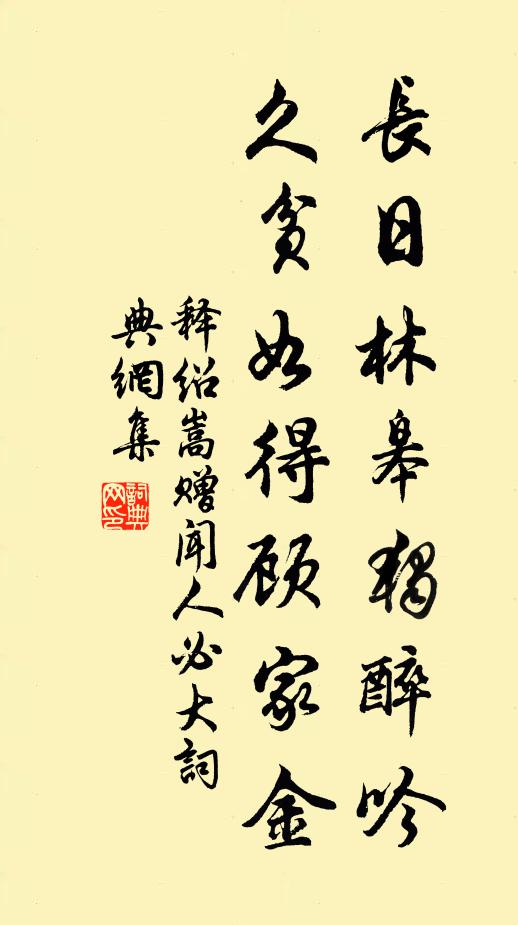 長日林皋獨醉吟
久貧如得顾家金
释绍嵩赠闻人必大詞
典網集
詞典网印